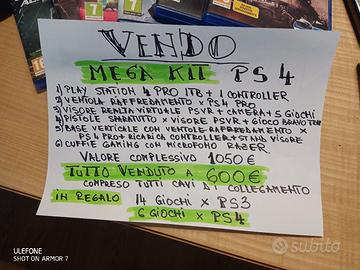 VENDO
MEGA KIT PS4
1) PLAY STATION 4 PRO 1TB + 1 CONTROLLER
2) VENTOLA RAFFREDDAMENTO x PS4 PRO
3) VISORE REALTA' VIRTUALE PSVR + CAMERA + 5 GIOCHI
4) PISTOLE SPARATUTTO x VISORE PSVR + GIOCO BRAVO TEAM
5) BASE VERTICALE CON VENTOLE RAFFREDDAMENTO x
PS4 PRO + RICARICA CONTROLLER + STAND VISORE
6) CUFFIE GAMING CON MICROFONO RAZER
VALORE COMPLESSIVO 1050€
TUTTO VENDUTO A 600€
COMPRESO TUTTI CAVI DI COLLEGAMENTO
IN REGALO 14 GIOCHI x PS3
6 GIOCHI x PS4
ULEFONE
SHOT ON ARMOR 7
subito